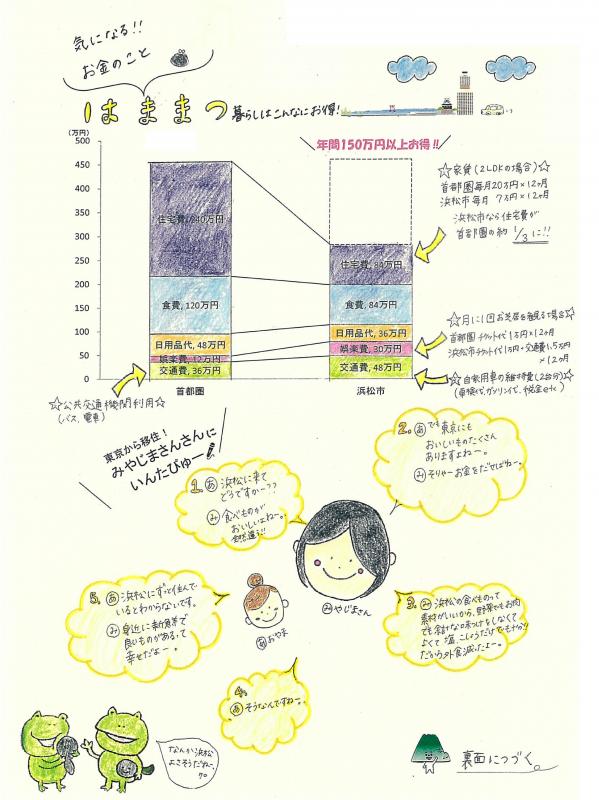 気になる!!
お金のこと
はままつ暮らしはこんなにお得!
年間150万円以上お得!!
(万円)
500
450
400
350
300
250
200
150
100
50
0
住宅費, 240万円
食費, 120万円
日用品代, 48万円
娯楽費, 12万円
交通費, 36万円
首都圏
住宅費, 84万円
食費, 84万円
日用品代, 36万円
娯楽費, 30万円
交通費, 48万円
浜松市
☆家賃(2LDKの場合)☆
首都圏毎月20万円×12ヶ月
浜松市毎月 7万円×12ヶ月
浜松市なら住宅費が
首都圏の約 1/3に!!
☆月に1回お芝居を観る場合☆
首都圏チケット代1万円×12ヶ月
浜松市チケット代1万円+交通費1.5万円
×12ヶ月
☆自家用車の維持費(2台分)☆
(車検代、ガソリン代、税金etc)
☆公共交通機関利用☆
(バス、電車)
東京から移住!
みやじまさんさんに
いんたびゅー!
1. あ 浜松に来て
どうですか~??
み 食べものが
おいしいよねー。
全然違う!!
2. あ でも東京にも
おいしいものたくさん
ありますよねー。
み そりゃーお金をだせばねー。
みやじまさん
3. み 浜松の食べものって
素材がいいから、野菜でもお肉
でも余計な味つけをしなくて
よくて塩、こしょうだけでも十分!!
だから外食減ったよー。
あおやま
4.
あ そうなんですねー。
5. あ 浜松にずっと住んで
いるとわからないです。
み 身近に新鮮で
良いものがあるって
幸せだよー。
なんか浜松
よさそうだねー。
ケロ
裏面につづく。